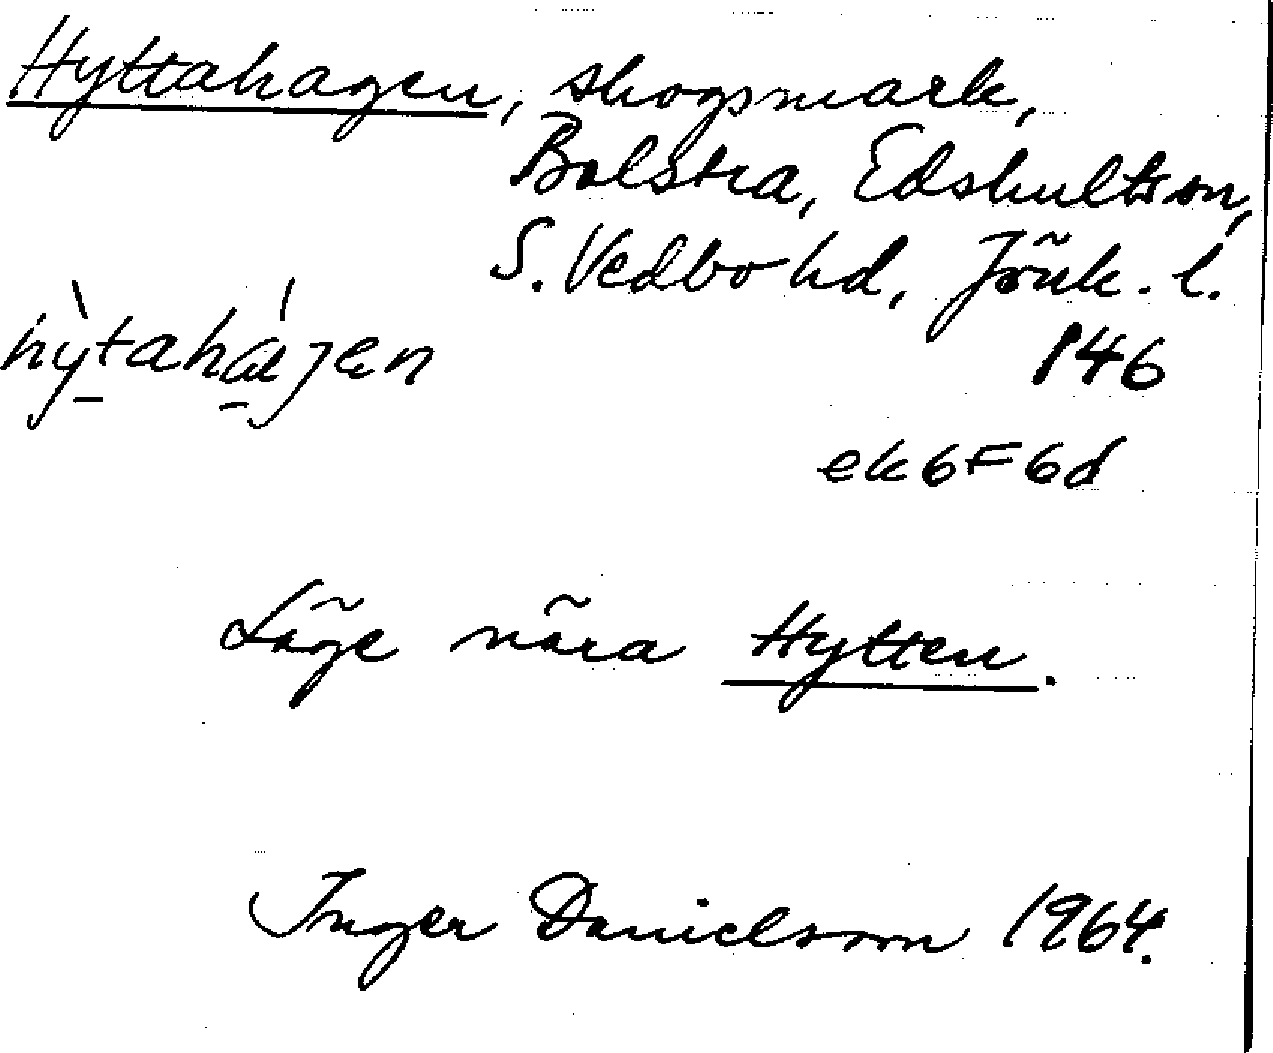 Hyttahagen, skogsmark,
Bolstra, Edshults sn,
S. Vedbo hd, Jönk. l.
hỳtahájen 146
ek6F6d
Läge nära Hytten.
Inger Danielsson 1964.